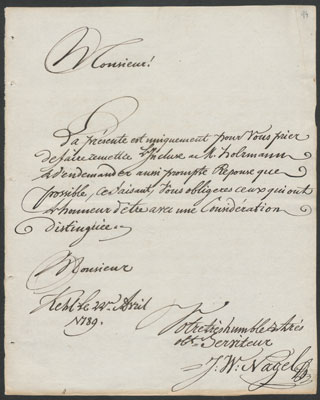 Monsieur!
La présente est uniquement pour Vous prier
de faire remettre l'Incluse a M. holzmann
& d'en demander aussi prompte Reponse que
possible, ce faisant, Vous obligerés ceux qui ont
l'honneur d'être avec une Considération
distinguée.
Monsieur
Kehl le 22. Avril
1789.
Votre très humble & très
obt. Serviteur
J. W. Nagel